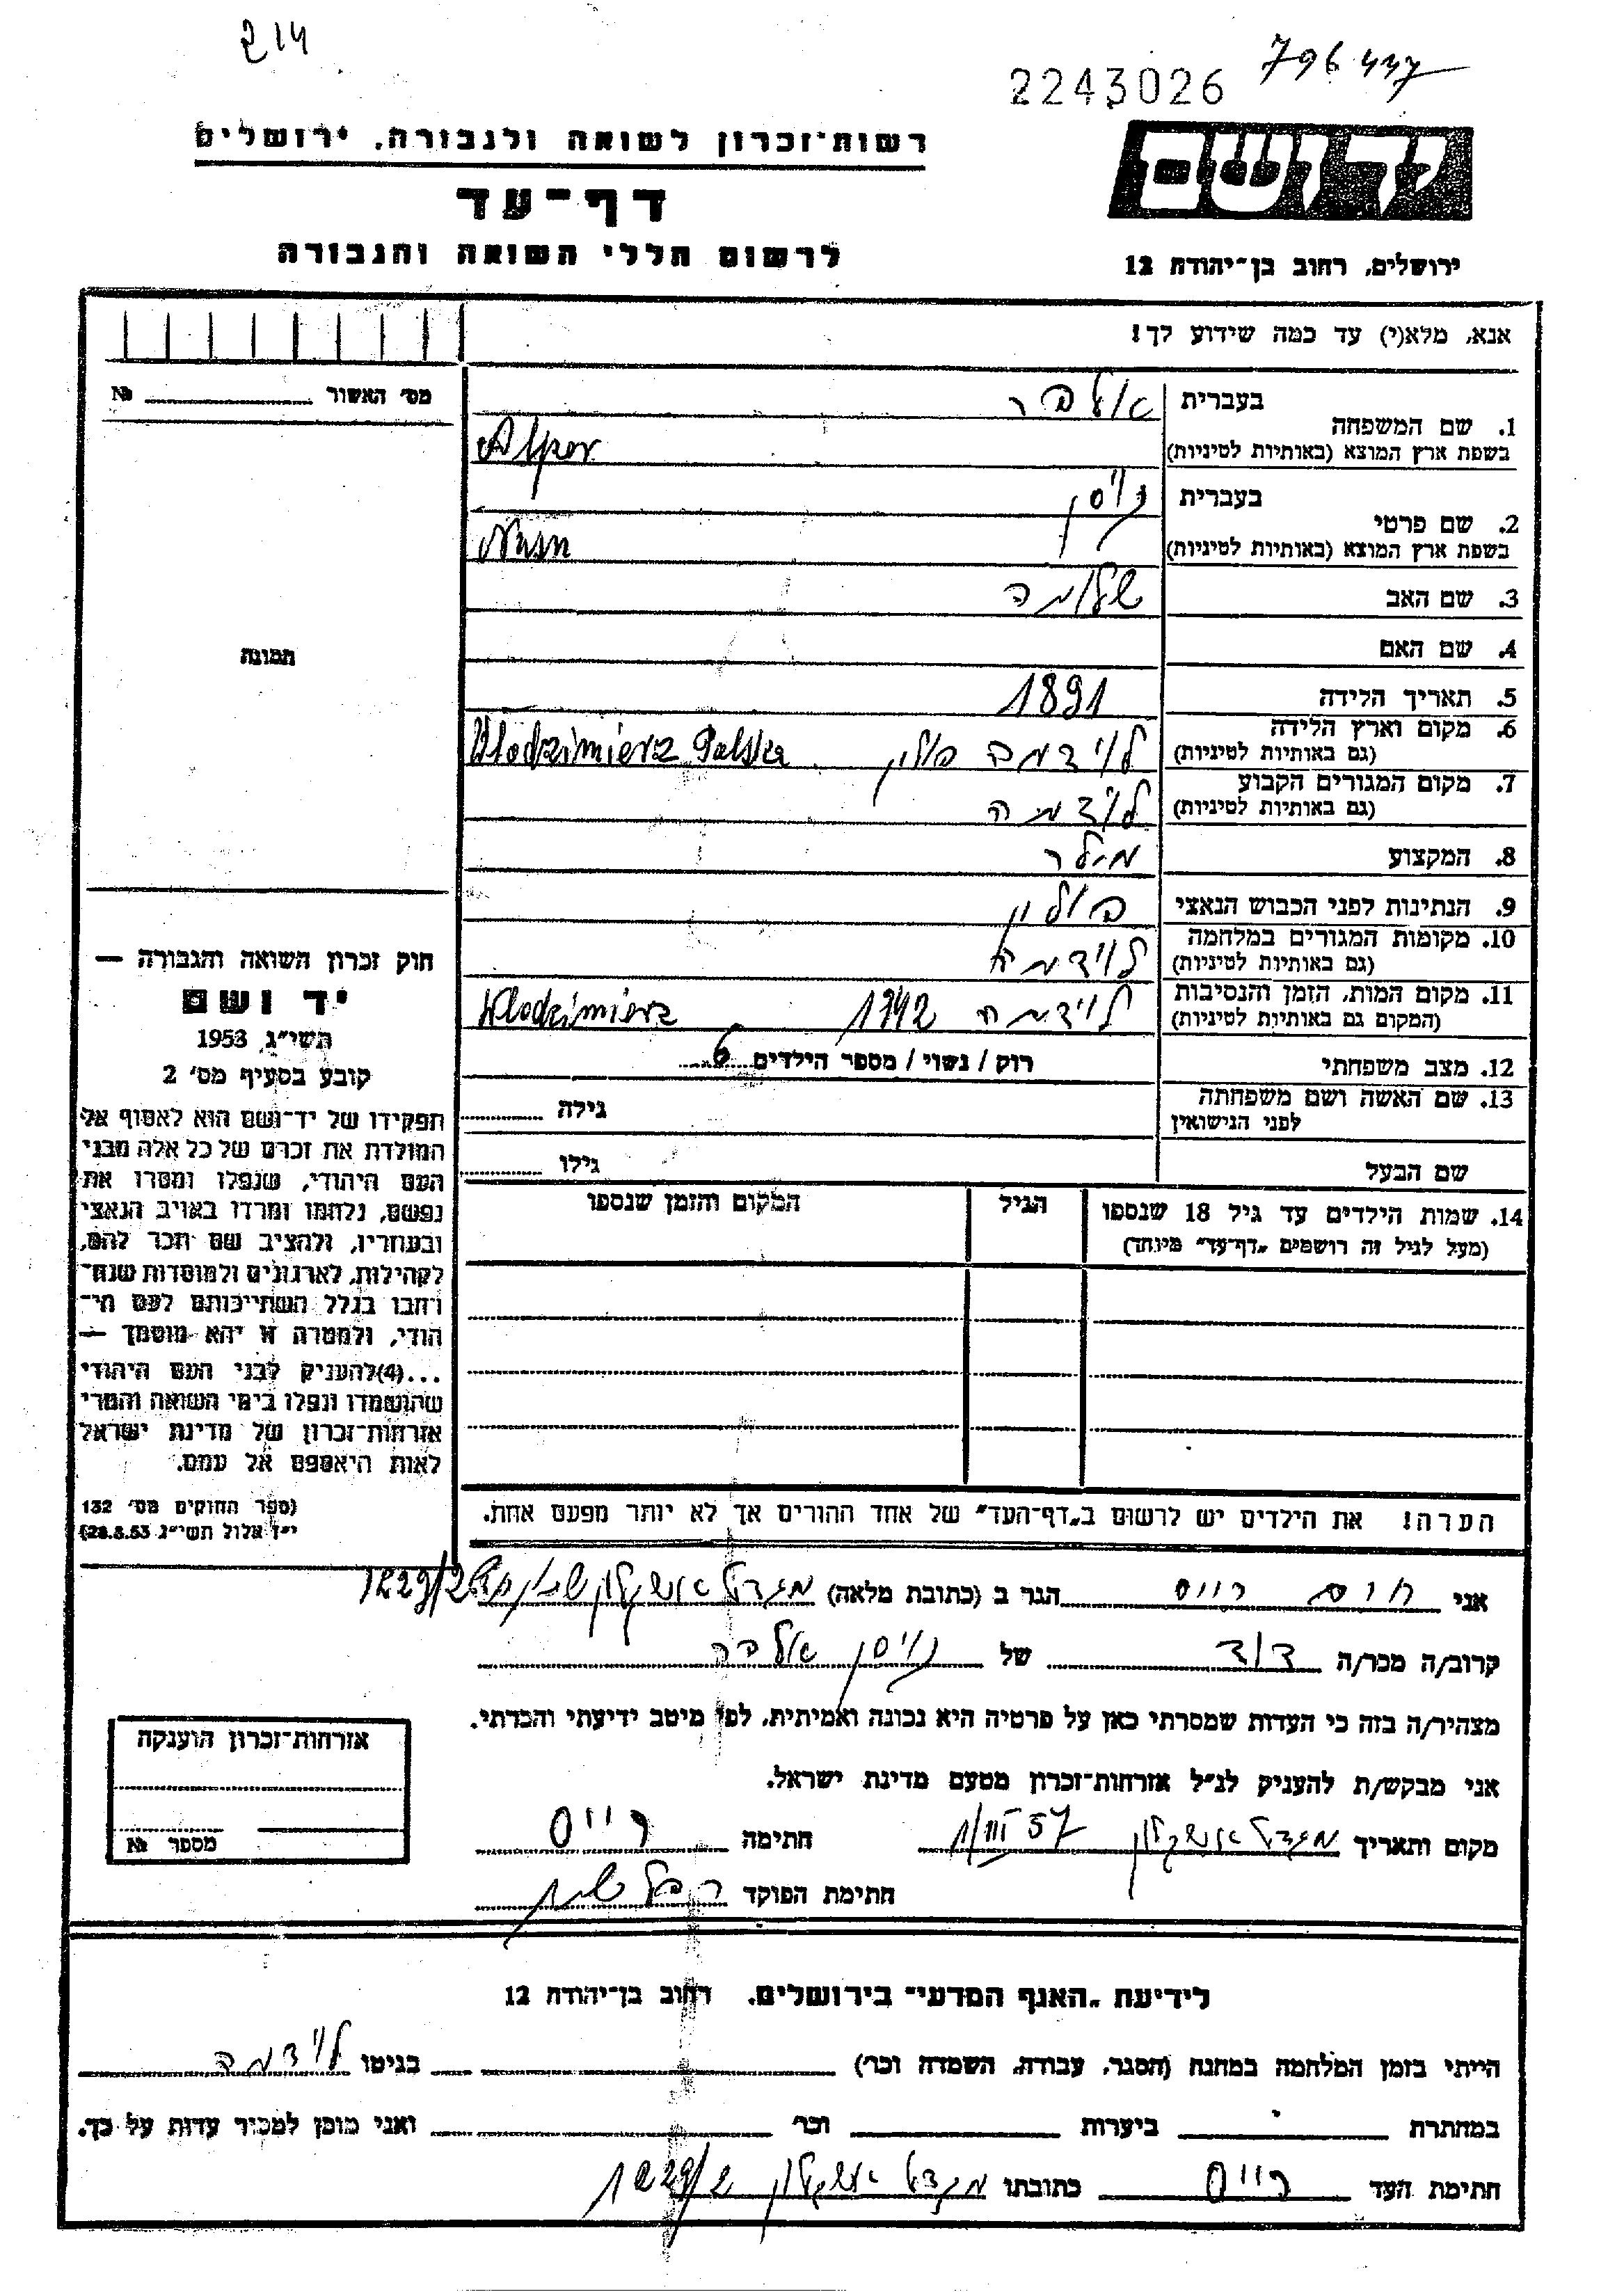 214
2243026 796447
רשות־זכרון לשואה ולגבורה, ירושלים
יד ושם
דף־עד
לרשום חללי השואה והגבורה
ירושלים, רחוב בן־יהודה 12
אנא, מלא(י) עד כמה שידוע לך!
מס׳ האשור № 
1. שם המשפחה
בעברית אלפר
בשפת ארץ המוצא (באותיות לטיניות) Alper
2. שם פרטי
בעברית ניסן
בשפת ארץ המוצא (באותיות לטיניות) Nisn
3. שם האב שלומה
4. שם האם
תמונה
5. תאריך הלידה 1891
6. מקום וארץ הלידה
(גם באותיות לטיניות) פולין Włodzimierz Polska
7. מקום המגורים הקבוע
(גם באותיות לטיניות) לוידמה
8. המקצוע
9. הנתינות לפני הכבוש הנאצי פולין
10. מקומות המגורים במלחמה
(גם באותיות לטיניות) לוידמה
11. מקום המות, הזמן והנסיבות
(המקום גם באותיות לטיניות) לוידמה 1942 Wlodzimierz
12. מצב משפחתי רוק / נשוי / מספר הילדים 6
13. שם האשה ושם משפחתה
לפני הנישואין גילה
שם הבעל גילו
14. שמות הילדים עד גיל 18 שנספו
(מעל לגיל זה רושמים „דף־עד" מיוחד)
הגיל
המקום והזמן שנספו
חוק זכרון השואה והגבורה —
יד ושם
תשי״ג 1953
קובע בסעיף מס׳ 2
תפקידו של יד־ושם הוא לאסוף אל
המולדת את זכרם של כל אלה מבני
העם היהודי, שנפלו ומסרו את
נפשם, נלחמו ומרדו באויב הנאצי
ובעוזריו, ולהציב שם וזכר להם,
לקהילות, לארגונים ולמוסדות שנח־
רבו בגלל השתייכותם לעם הי־
הודי, ולמטרה זו יהא מוסמך —
...(4)להעניק לבני העם היהודי
שהושמדו ונפלו בימי השואה והמרי
אזרחות־זכרון של מדינת ישראל
לאות היאספם אל עמם.
(ספר החוקים מס׳ 132
י״ז אלול תשי״ג 28.8.53)
הערה! את הילדים יש לרשום ב„דף־העד" של אחד ההורים אך לא יותר מפעם אחת.
אני רייס הגר ב (כתובת מלאה) מגדל אשקלון 1229/2
קרוב/ה מכר/ה דוד של ניסן אלפר
מצהיר/ה בזה כי העדות שמסרתי כאן על פרטיה היא נכונה ואמיתית, לפי מיטב ידיעתי והכרתי.
אני מבקש/ת להעניק לנ״ל אזרחות־זכרון מטעם מדינת ישראל.
אזרחות־זכרון הוענקה
מספר №
מקום ותאריך מגדל אשקלון 1/III 57 חתימה רייס
חתימת הפוקד
לידיעת „האגף המדעי" בירושלים, רחוב בן־יהודה 12
הייתי בזמן המלחמה במחנה (הסגר, עבודה, השמדה וכו׳) בגיטו לוידמה
במחתרת ביערות וכו׳ ואני מוכן למסור עדות על כך.
חתימת העד רייס כתובתו מגדל אשקלון 1229/2